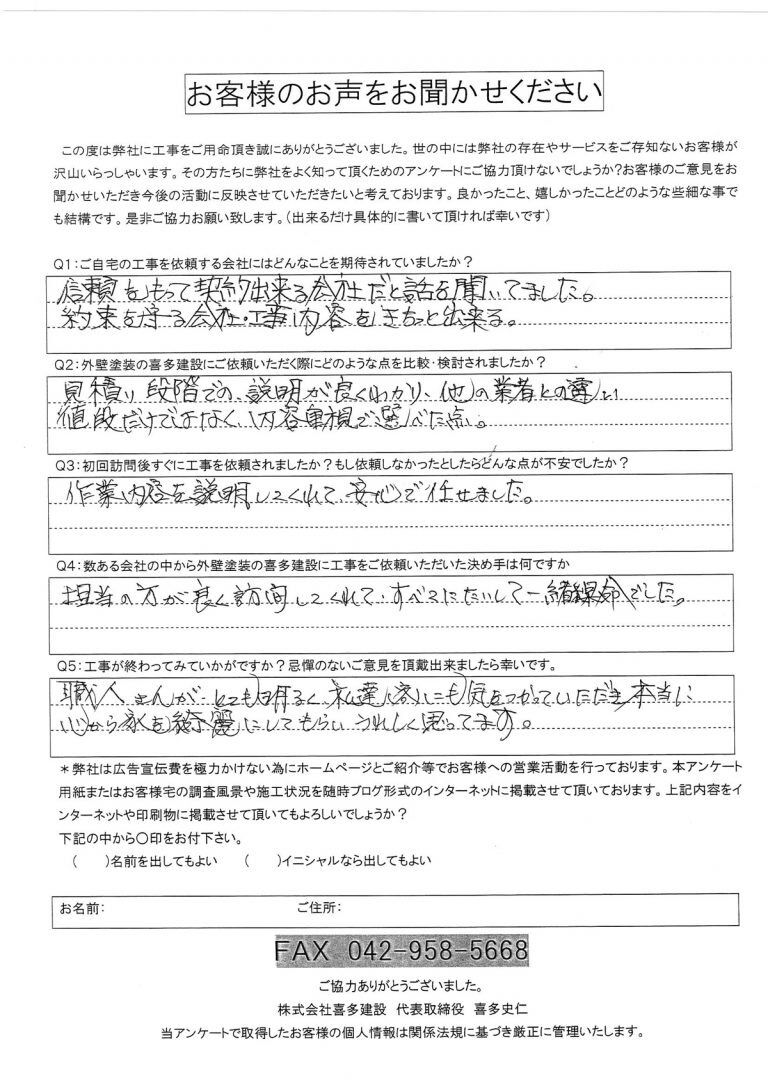 お客様のお声をお聞かせください
この度は弊社に工事をご用命頂き誠にありがとうございました。世の中には弊社の存在やサービスをご存知ないお客様が
沢山いらっしゃいます。その方たちに弊社をよく知って頂くためのアンケートにご協力頂けないでしょうか?お客様のご意見をお
聞かせいただき今後の活動に反映させていただきたいと考えております。良かったこと、嬉しかったことどのような些細な事で
も結構です。是非ご協力お願い致します。(出来るだけ具体的に書いて頂ければ幸いです)
Q1:ご自宅の工事を依頼する会社にはどんなことを期待されていましたか?
信頼をもって契約出来る会社だと話を聞いてました。
約束を守る会社・工事内容をきちっと出来る。
Q2:外壁塗装の喜多建設にご依頼いただく際にどのような点を比較・検討されましたか?
見積り段階での説明が良くわかり、他の業者との違い
値段だけではなく、内容重視で選べた点。
Q3:初回訪問後すぐに工事を依頼されましたか?もし依頼しなかったとしたらどんな点が不安でしたか?
作業内容を説明してくれて、安心で任せました。
Q4:数ある会社の中から外壁塗装の喜多建設に工事をご依頼いただいた決め手は何ですか
担当の方が良く訪問してくれて、すべてにたいして一緒線命でした。
Q5:工事が終わってみていかがですか?忌憚のないご意見を頂戴出来ましたら幸いです。
職人さんが、とても明るく私達家にも気をつかっていただき本当に
心から家を綺麗にしてもらいうれしく思ってます。
*弊社は広告宣伝費を極力かけない為にホームページとご紹介等でお客様への営業活動を行っております。本アンケート
用紙またはお客様宅の調査風景や施工状況を随時ブログ形式のインターネットに掲載させて頂いております。上記内容をイ
ンターネットや印刷物に掲載させて頂いてもよろしいでしょうか?
下記の中から〇印をお付下さい。
( )名前を出してもよい ( )イニシャルなら出してもよい
お名前: ご住所:
FAX 042-958-5668
ご協力ありがとうございました。
株式会社喜多建設 代表取締役 喜多史仁
当アンケートで取得したお客様の個人情報は関係法規に基づき厳正に管理いたします。